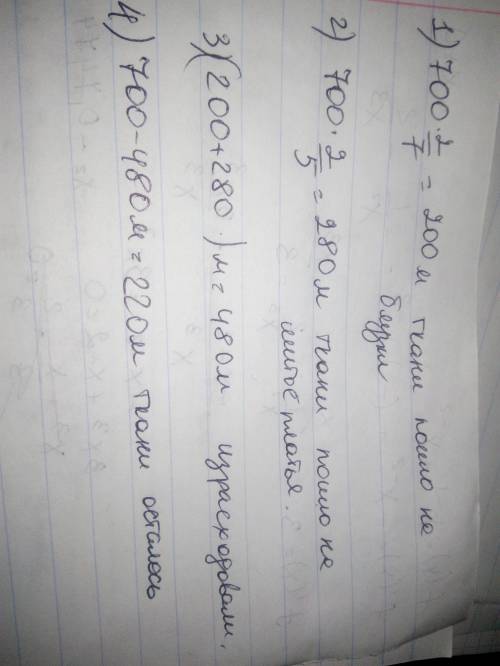 1) 700 · 2/7 = 200 м ткани пошло на
блузки
2) 700 · 2/5 = 280 м ткани пошло на
шитьё платья.
3) (200+280) м = 480 м израсходовали.
4) 700 - 480 м = 220 м ткани осталось